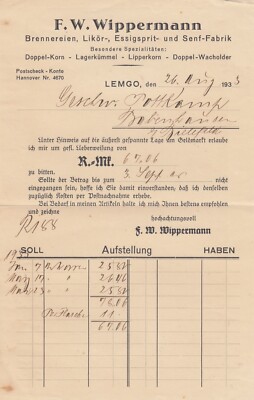 F. W. Wippermann
Brennereien, Likör-, Essigsprit- und Senf-Fabrik
Besondere Spezialitäten:
Doppel-Korn - Lagerkümmel - Lipperkorn - Doppel-Wacholder
Postscheck-Konto
Hannover Nr. 4670
LEMGO, den 26 Aug 1933
Geschw. Pottkamp
Brakenhausen
b/ Bielefeld
Unter Hinweis auf die äußerst gespannte Lage des Geldmarkt erlaube
ich mir um gefl. Ueberweisung von
R.-Mk. 67.06
zu bitten.
Sollte der Betrag bis zum 3 Sept cr nicht
eingegangen sein, hoffe ich Sie damit einverstanden, daß ich denselben
zuzüglich Kosten per Postnachnahme erhebe.
Bei Bedarf in meinen Artikeln halte ich mich Ihnen bestens empfohlen
und zeichne
hochachtungsvoll
F. W. Wippermann
R188
SOLL Aufstellung HABEN
193
Jan 7 25 80
May 17 " 26 06
May 23 " 25 80
78 06
Per Flasche 11 -
67.06